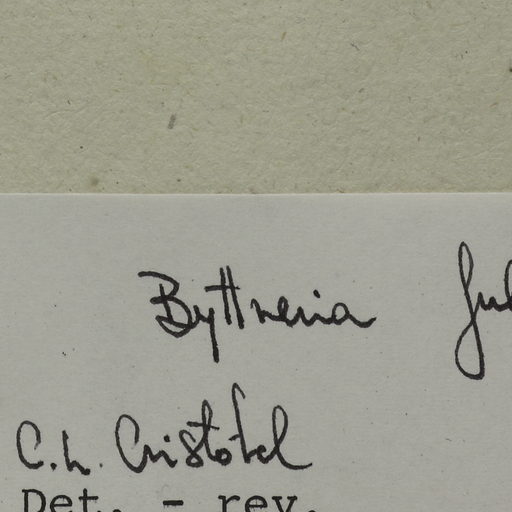 Byttneria
C.L. Cristóbal
Det. - rev.